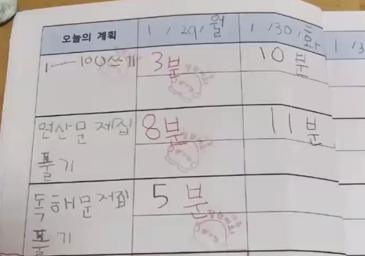 오늘의 계획 1 / 29 / 월 1 / 30 / 화 1 / 3
1—100쓰기 3분 10분
연산문제집 8분 11분
풀기
독해문제집 5분
풀기